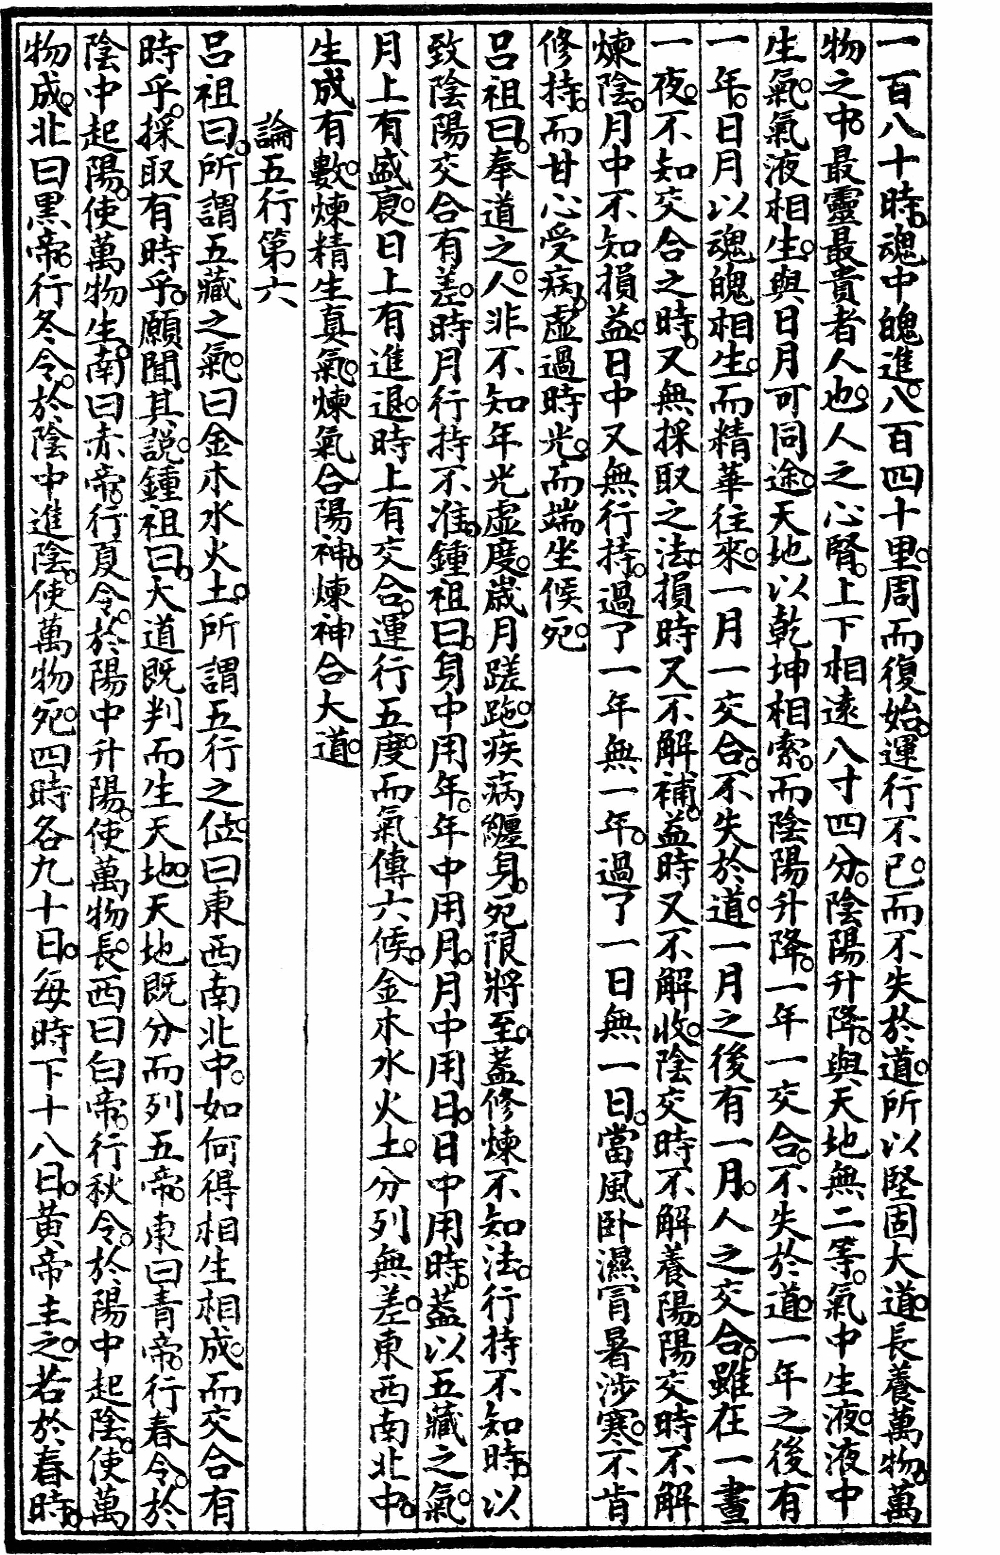 一百八十時。魂中魄進。八百四十里。周而復始。運行不已。而不失於道。所以堅固大道。長養萬物。萬
物之中。最靈最貴者人也。人之心腎。上下相遠八寸四分。陰陽升降。與天地無二等。氣中生液。液中
生氣。氣液相生。與日月可同途。天地以乾坤相索。而陰陽升降。一年一交合。不失於道。一年之後有
一年。日月以魂魄相生。而精華往來。一月一交合。不失於道。一月之後有一月。人之交合。雖在一晝
一夜。不知交合之時。又無採取之法。損時又不解補。益時又不解收。陰交時不解養陽。陽交時不解
煉陰。月中不知損益。日中又無行持。過了一年無一年。過了一日無一日。當風卧濕。冒暑涉寒。不肯
修持。而甘心受病。虛過時光。而端坐候死。
呂祖曰。奉道之人。非不知年光虛度。歲月蹉跎。疾病纏身。死限將至。蓋修煉不知法。行持不知時。以
致陰陽交合有差。時月行持不准。鍾祖曰。身中用年。年中用月。月中用日。日中用時。蓋以五藏之氣。
月上有盛衰。日上有進退。時上有交合。運行五度。而氣傳六候。金木水火土。分列無差。東西南北中。
生成有數。煉精生真氣。煉氣合陽神。煉神合大道。
論五行第六
呂祖曰。所謂五藏之氣。曰金木水火土。所謂五行之位。曰東西南北中。如何得相生相成。而交合有
時乎。採取有時乎。願聞其說。鍾祖曰。大道既判而生天地。天地既分而列五帝。東曰青帝。行春令。於
陰中起陽。使萬物生。南曰赤帝。行夏令。於陽中升陽。使萬物長。西曰白帝。行秋令。於陽中起陰。使萬
物成。北曰黑帝。行冬令。於陰中進陰。使萬物死。四時各九十日。每時下十八日。黃帝主之。若於春時。